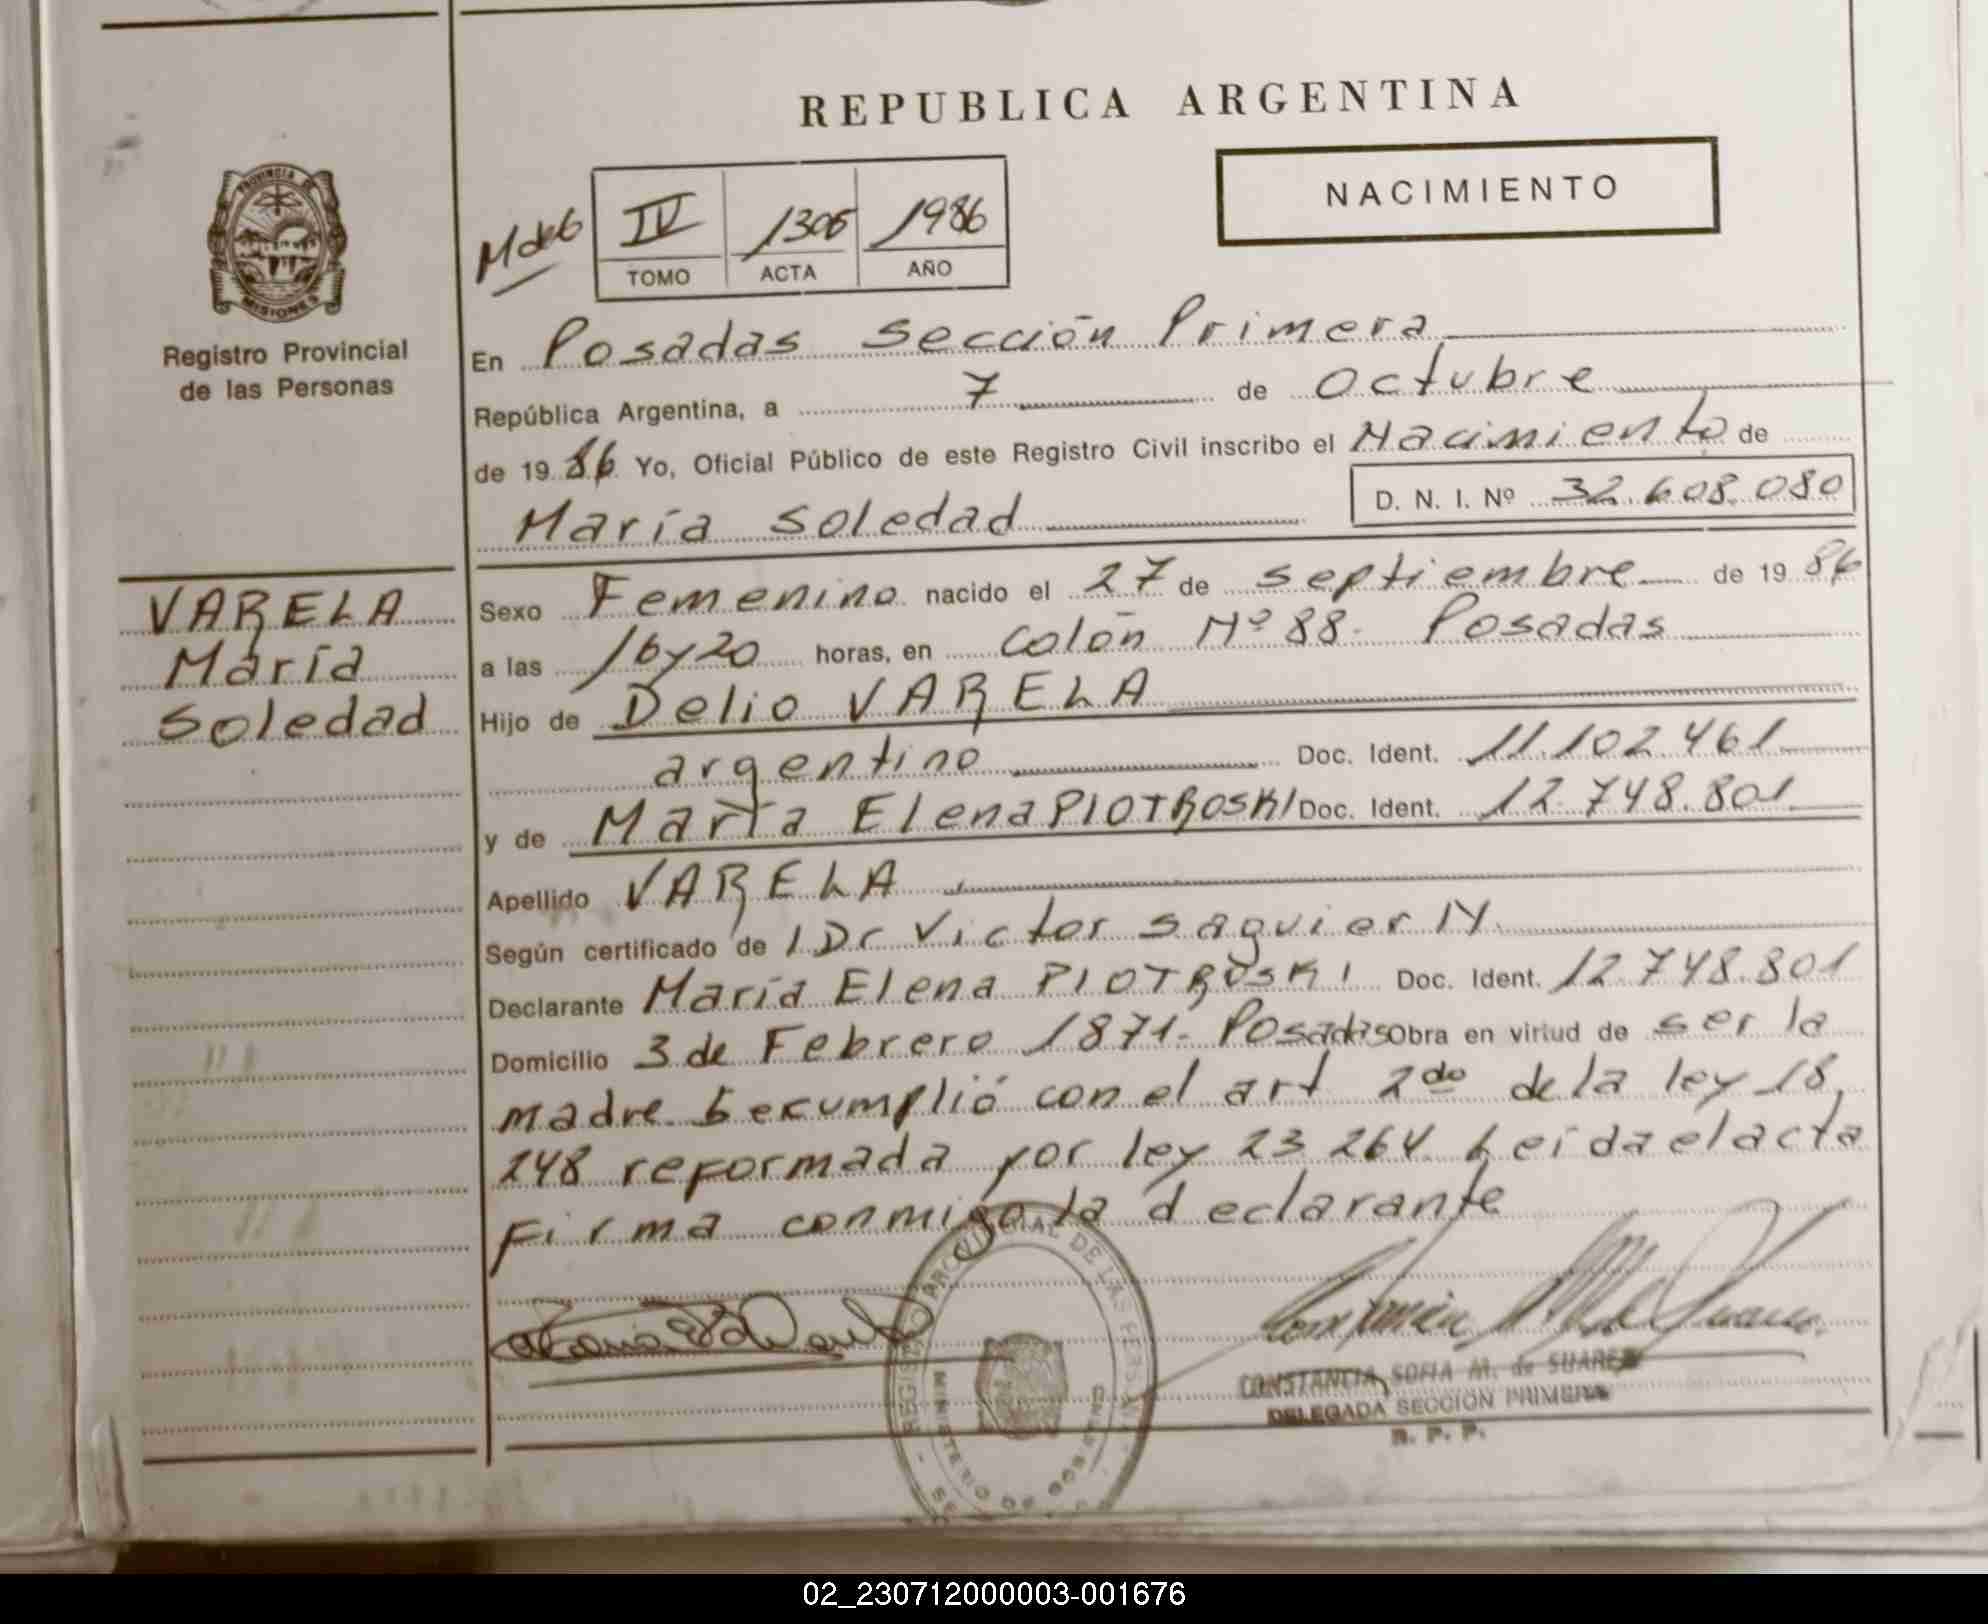 REPUBLICA ARGENTINA
NACIMIENTO
IV 1305 1986
TOMO ACTA AÑO
PROVINCIA DE
MISIONES
Registro Provincial
de las Personas
En Posadas Sección Primera
República Argentina, a 7 de Octubre
de 19 86 Yo, Oficial Público de este Registro Civil inscribo el Nacimiento de
María Soledad D. N. I. Nº 32.608.080
VARELA
María
Soledad
Sexo Femenino nacido el 27 de septiembre de 19 86
a las 16 y 20 horas, en Colón Nº 88. Posadas
Hijo de Delio VARELA
argentino Doc. Ident. 11.102.461
y de María Elena PIOTROSKI Doc. Ident. 12.748.801
Apellido VARELA
Según certificado de 1 Dr Victor Saguier N.
Declarante María Elena PIOTROSKI Doc. Ident. 12.748.801
Domicilio 3 de Febrero 1871. Posadas Obra en virtud de ser la
madre. Se cumplió con el art 2do de la ley 18.
248 reformada por ley 23.264. Leída el acta
firma conmigo la declarante
REGISTRO PROVINCIAL DE LAS PERSONAS
MINISTERIO DE GOBIERNO
CONSTANCIA SOFIA M. de SUAREZ
DELEGADA SECCION PRIMERA
R. P. P.
02_230712000003-001676